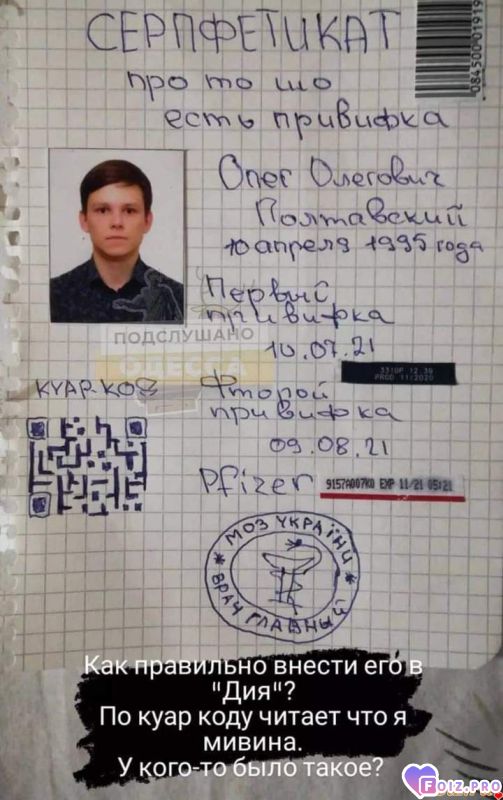 СЕРПФЕТИКАТ
084500-01919
про то шо
есть привифка
Олег Олегович
Полтавский
10 апреля 1995 года
Первый
привифка
10.07.21
ПОДСЛУШАНО
ОДЕССА
3310P 12:39
PROD 11/2020
КУАР-КОД
Фторой
привифка
09.08.21
Pfizer
9157A007K0 EXP 11/21 05:21
МОЗ УКРАЇНИ
ВРАЧ ГЛАВНЫЙ
Как правильно внести его в
"Дия"?
По куар коду читает что я
мивина.
У кого-то было такое?
FOIZ.PRO